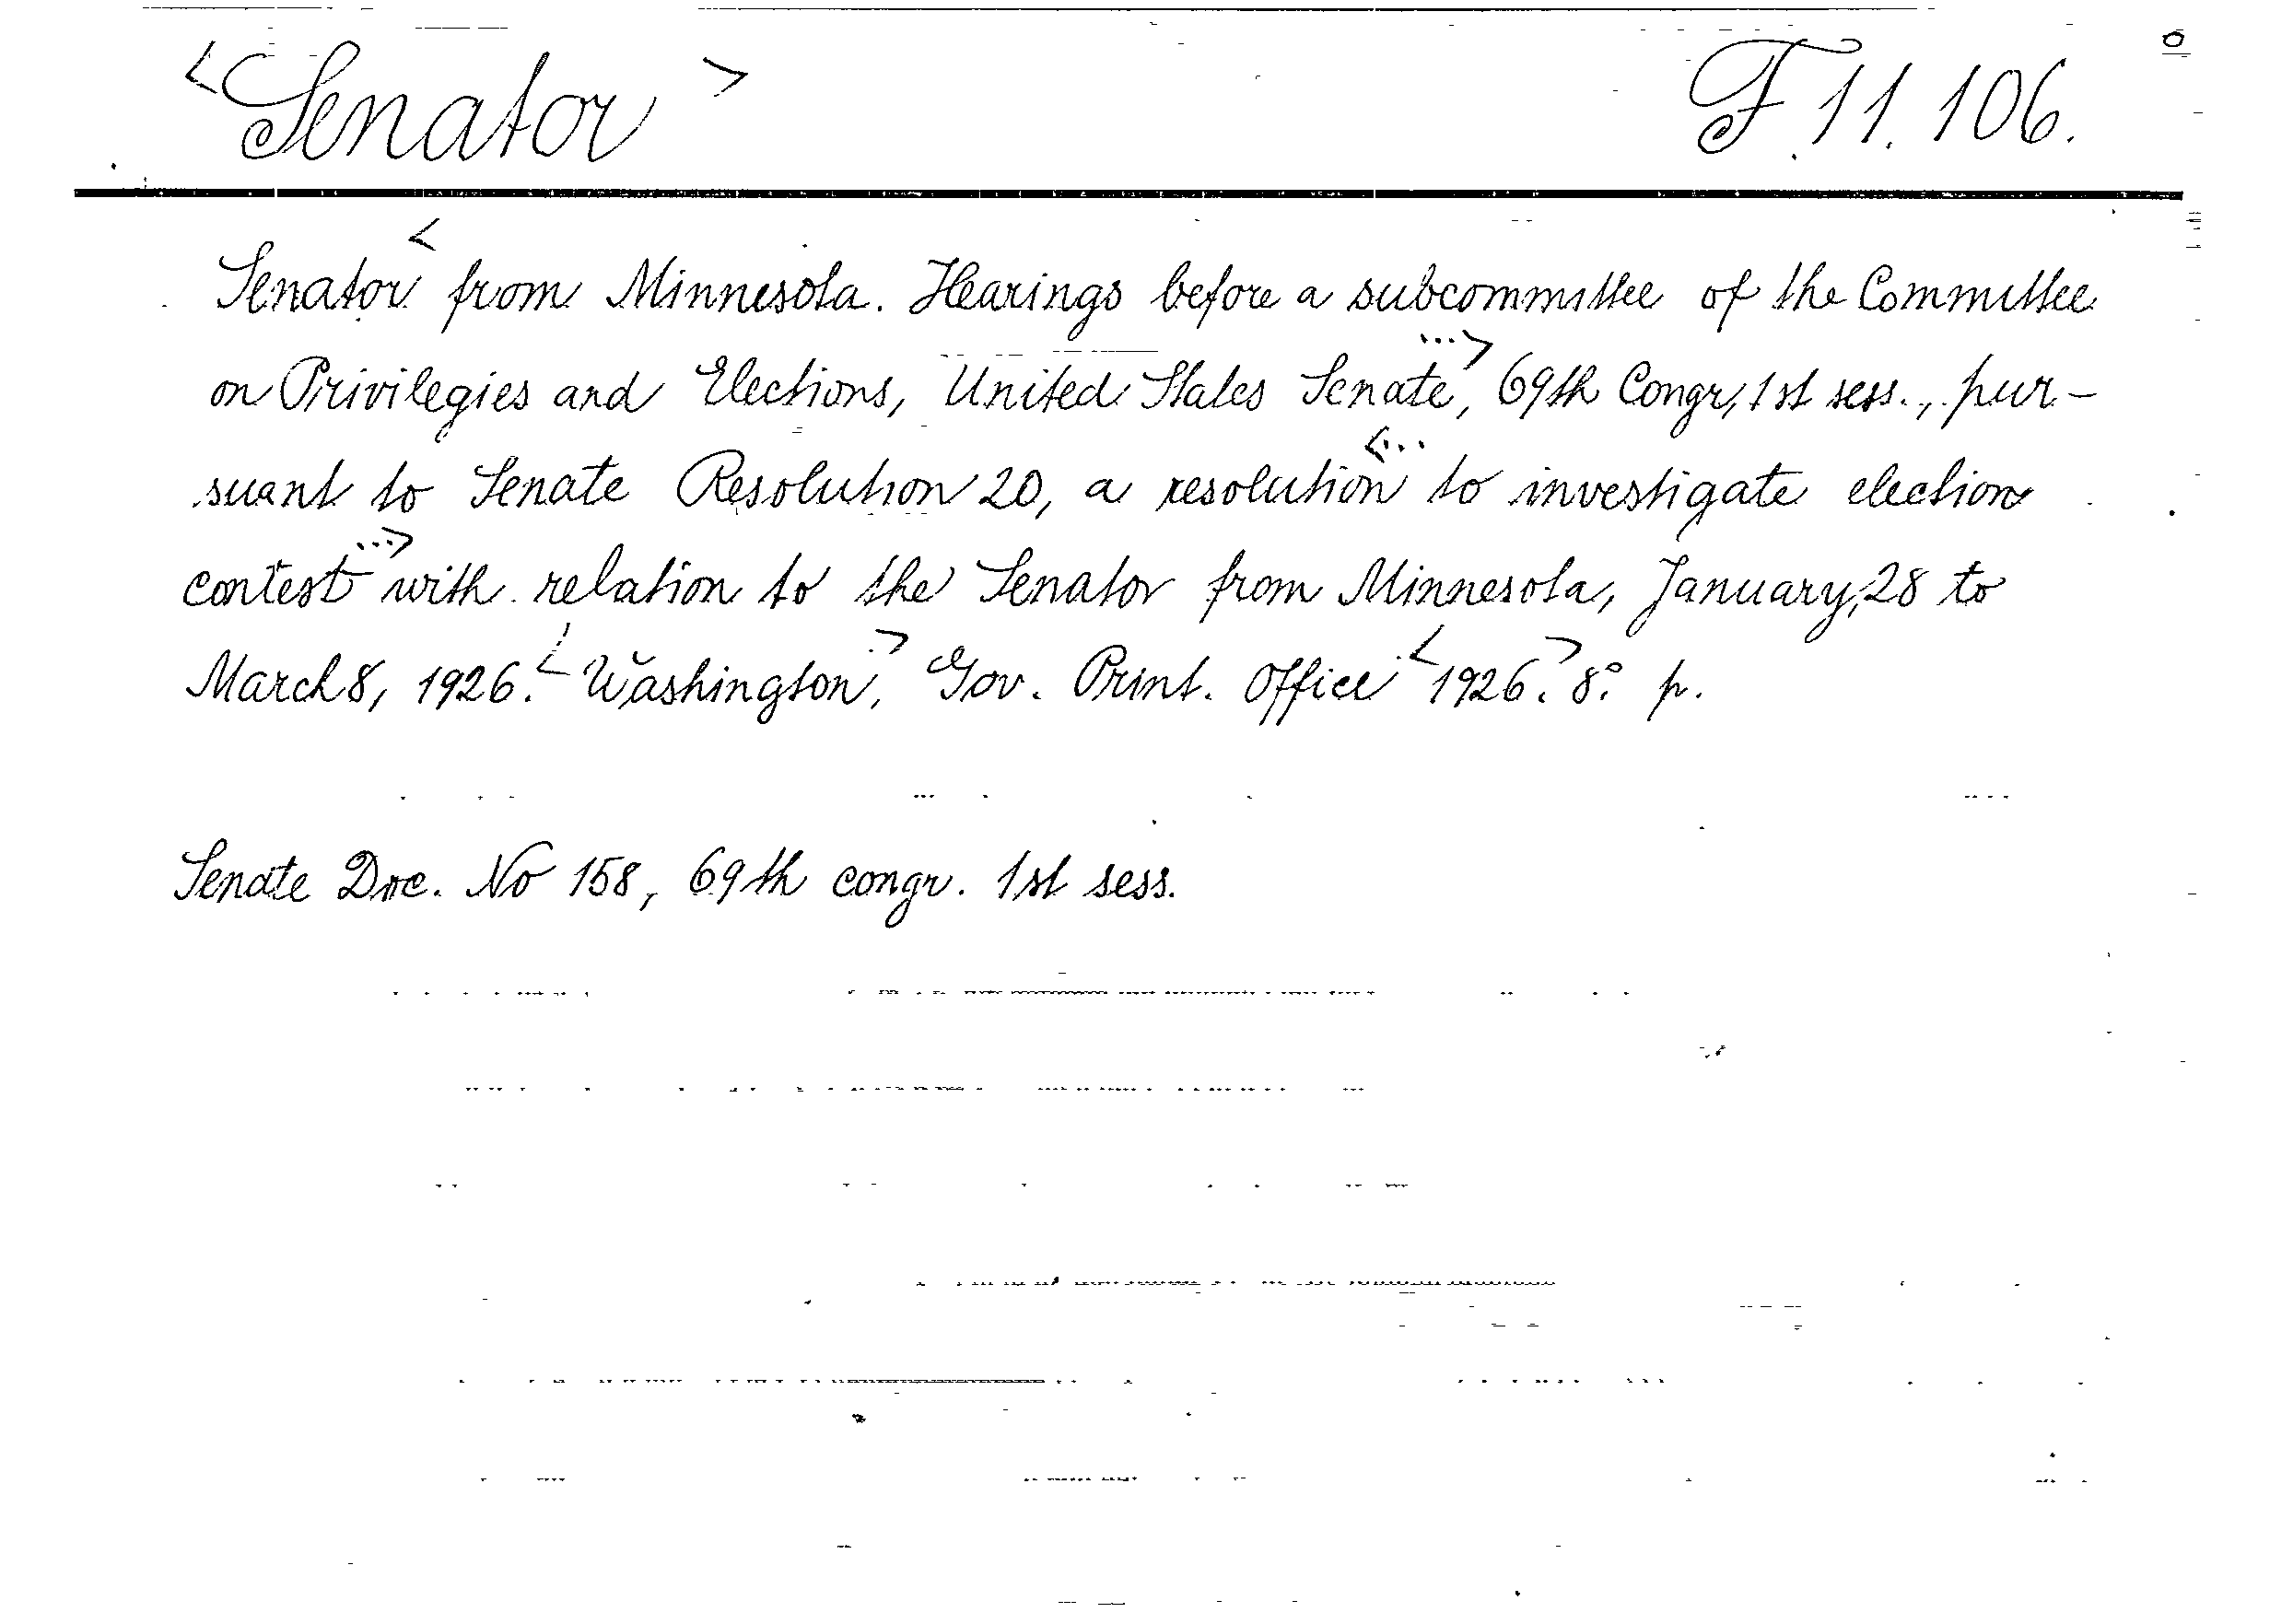 <Senator> F 11. 106.
Senator < from Minnesota. Hearings before a subcommittee of the Committee
on Privilegies and Elections, United States Senate ...>, 69th Congr, 1st sess., pur-
suant to Senate Resolution 20, a resolution <... to investigate election
contest ...> with relation to the Senator from Minnesota, January, 28 to
March 8, 1926. < Washington, > Gov. Print. Office < 1926. > 8° p.
Senate Doc. No 158, 69th congr. 1st sess.